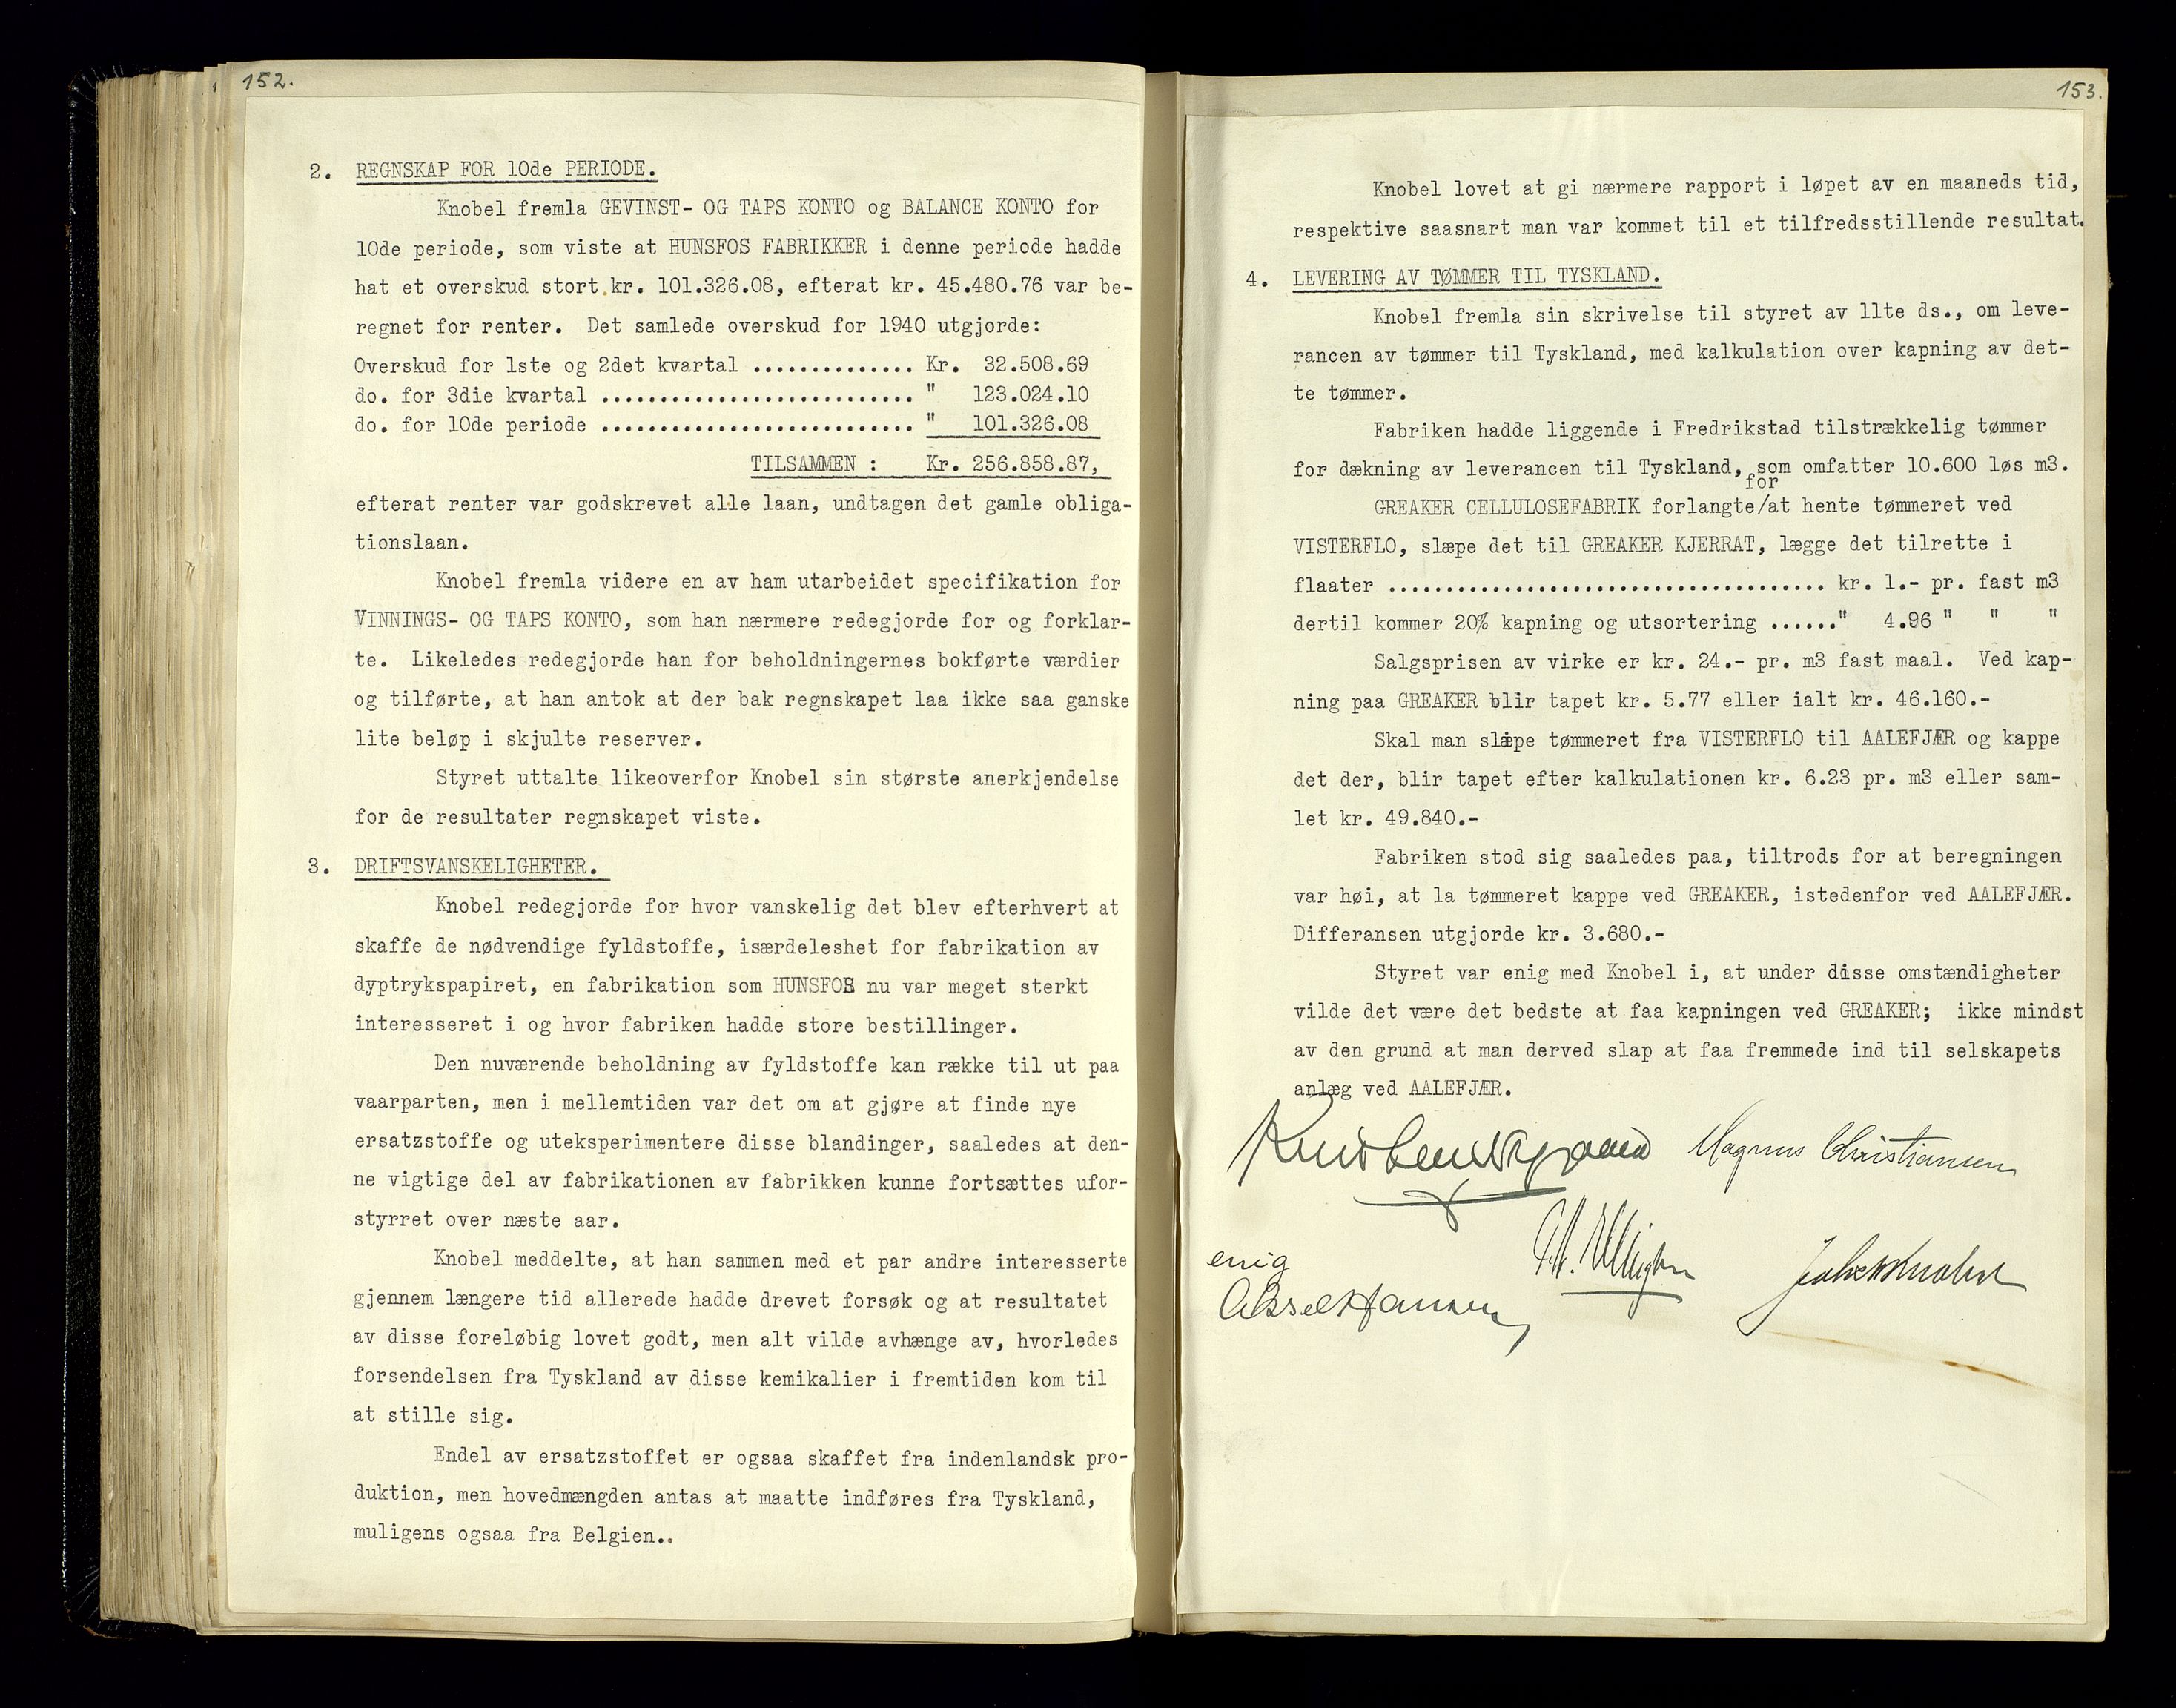 152.
2. REGNSKAP FOR 10de PERIODE.
Knobel fremla GEVINST- OG TAPS KONTO og BALANCE KONTO for
10de periode, som viste at HUNSFOS FABRIKKER i denne periode hadde
hat et overskud stort kr. 101.326.08, efterat kr. 45.480.76 var be-
regnet for renter. Det samlede overskud for 1940 utgjorde:
Overskud for 1ste og 2det kvartal .............. Kr. 32.508.69
do. for 3die kvartal ........................... " 123.024.10
do. for 10de periode ........................... " 101.326.08
TILSAMMEN : Kr. 256.858.87,
efterat renter var godskrevet alle laan, undtagen det gamle obliga-
tionslaan.
Knobel fremla videre en av ham utarbeidet specifikation for
VINNINGS- OG TAPS KONTO, som han nærmere redegjorde for og forklar-
te. Likeledes redegjorde han for beholdningernes bokførte værdier
og tilførte, at han antok at der bak regnskapet laa ikke saa ganske
lite beløp i skjulte reserver.
Styret uttalte likeoverfor Knobel sin største anerkjendelse
for de resultater regnskapet viste.
3. DRIFTSVANSKELIGHETER.
Knobel redegjorde for hvor vanskelig det blev efterhvert at
skaffe de nødvendige fyldstoffe, isærdeleshet for fabrikation av
dyptrykspapiret, en fabrikation som HUNSFOS nu var meget sterkt
interesseret i og hvor fabriken hadde store bestillinger.
Den nuværende beholdning av fyldstoffe kan række til ut paa
vaarparten, men i mellemtiden var det om at gjøre at finde nye
ersatzstoffe og uteksperimentere disse blandinger, saaledes at den-
ne vigtige del av fabrikationen av fabrikken kunne fortsættes ufor-
styrret over næste aar.
Knobel meddelte, at han sammen med et par andre interesserte
gjennem længere tid allerede hadde drevet forsøk og at resultatet
av disse foreløbig lovet godt, men alt vilde avhænge av, hvorledes
forsendelsen fra Tyskland av disse kemikalier i fremtiden kom til
at stille sig.
Endel av ersatzstoffet er ogsaa skaffet fra indenlandsk pro-
duktion, men hovedmængden antas at maatte indføres fra Tyskland,
muligens ogsaa fra Belgien..
153.
Knobel lovet at gi nærmere rapport i løpet av en maaneds tid,
respektive saasnart man var kommet til et tilfredsstillende resultat.
4. LEVERING AV TØMMER TIL TYSKLAND.
Knobel fremla sin skrivelse til styret av 11te ds., om leve-
rancen av tømmer til Tyskland, med kalkulation over kapning av det-
te tømmer.
Fabriken hadde liggende i Fredrikstad tilstrækkelig tømmer
for dækning av leverancen til Tyskland, som omfatter 10.600 løs m3.
for
GREAKER CELLULOSEFABRIK forlangte/at hente tømmeret ved
VISTERFLO, slæpe det til GREAKER KJERRAT, lægge det tilrette i
flaater ...................................... kr. 1.- pr. fast m3
dertil kommer 20% kapning og utsortering ......" 4.96 " " "
Salgsprisen av virke er kr. 24.- pr. m3 fast maal. Ved kap-
ning paa GREAKER blir tapet kr. 5.77 eller ialt kr. 46.160.-
Skal man slæpe tømmeret fra VISTERFLO til AALEFJÆR og kappe
det der, blir tapet efter kalkulationen kr. 6.23 pr. m3 eller sam-
let kr. 49.840.-
Fabriken stod sig saaledes paa, tiltrods for at beregningen
var høi, at la tømmeret kappe ved GREAKER, istedenfor ved AALEFJÆR.
Differansen utgjorde kr. 3.680.-
Styret var enig med Knobel i, at under disse omstændigheter
vilde det være det bedste at faa kapningen ved GREAKER; ikke mindst
av den grund at man derved slap at faa fremmede ind til selskapets
anlæg ved AALEFJÆR.
Magnus Christiansen
enig
Aksel Hansen